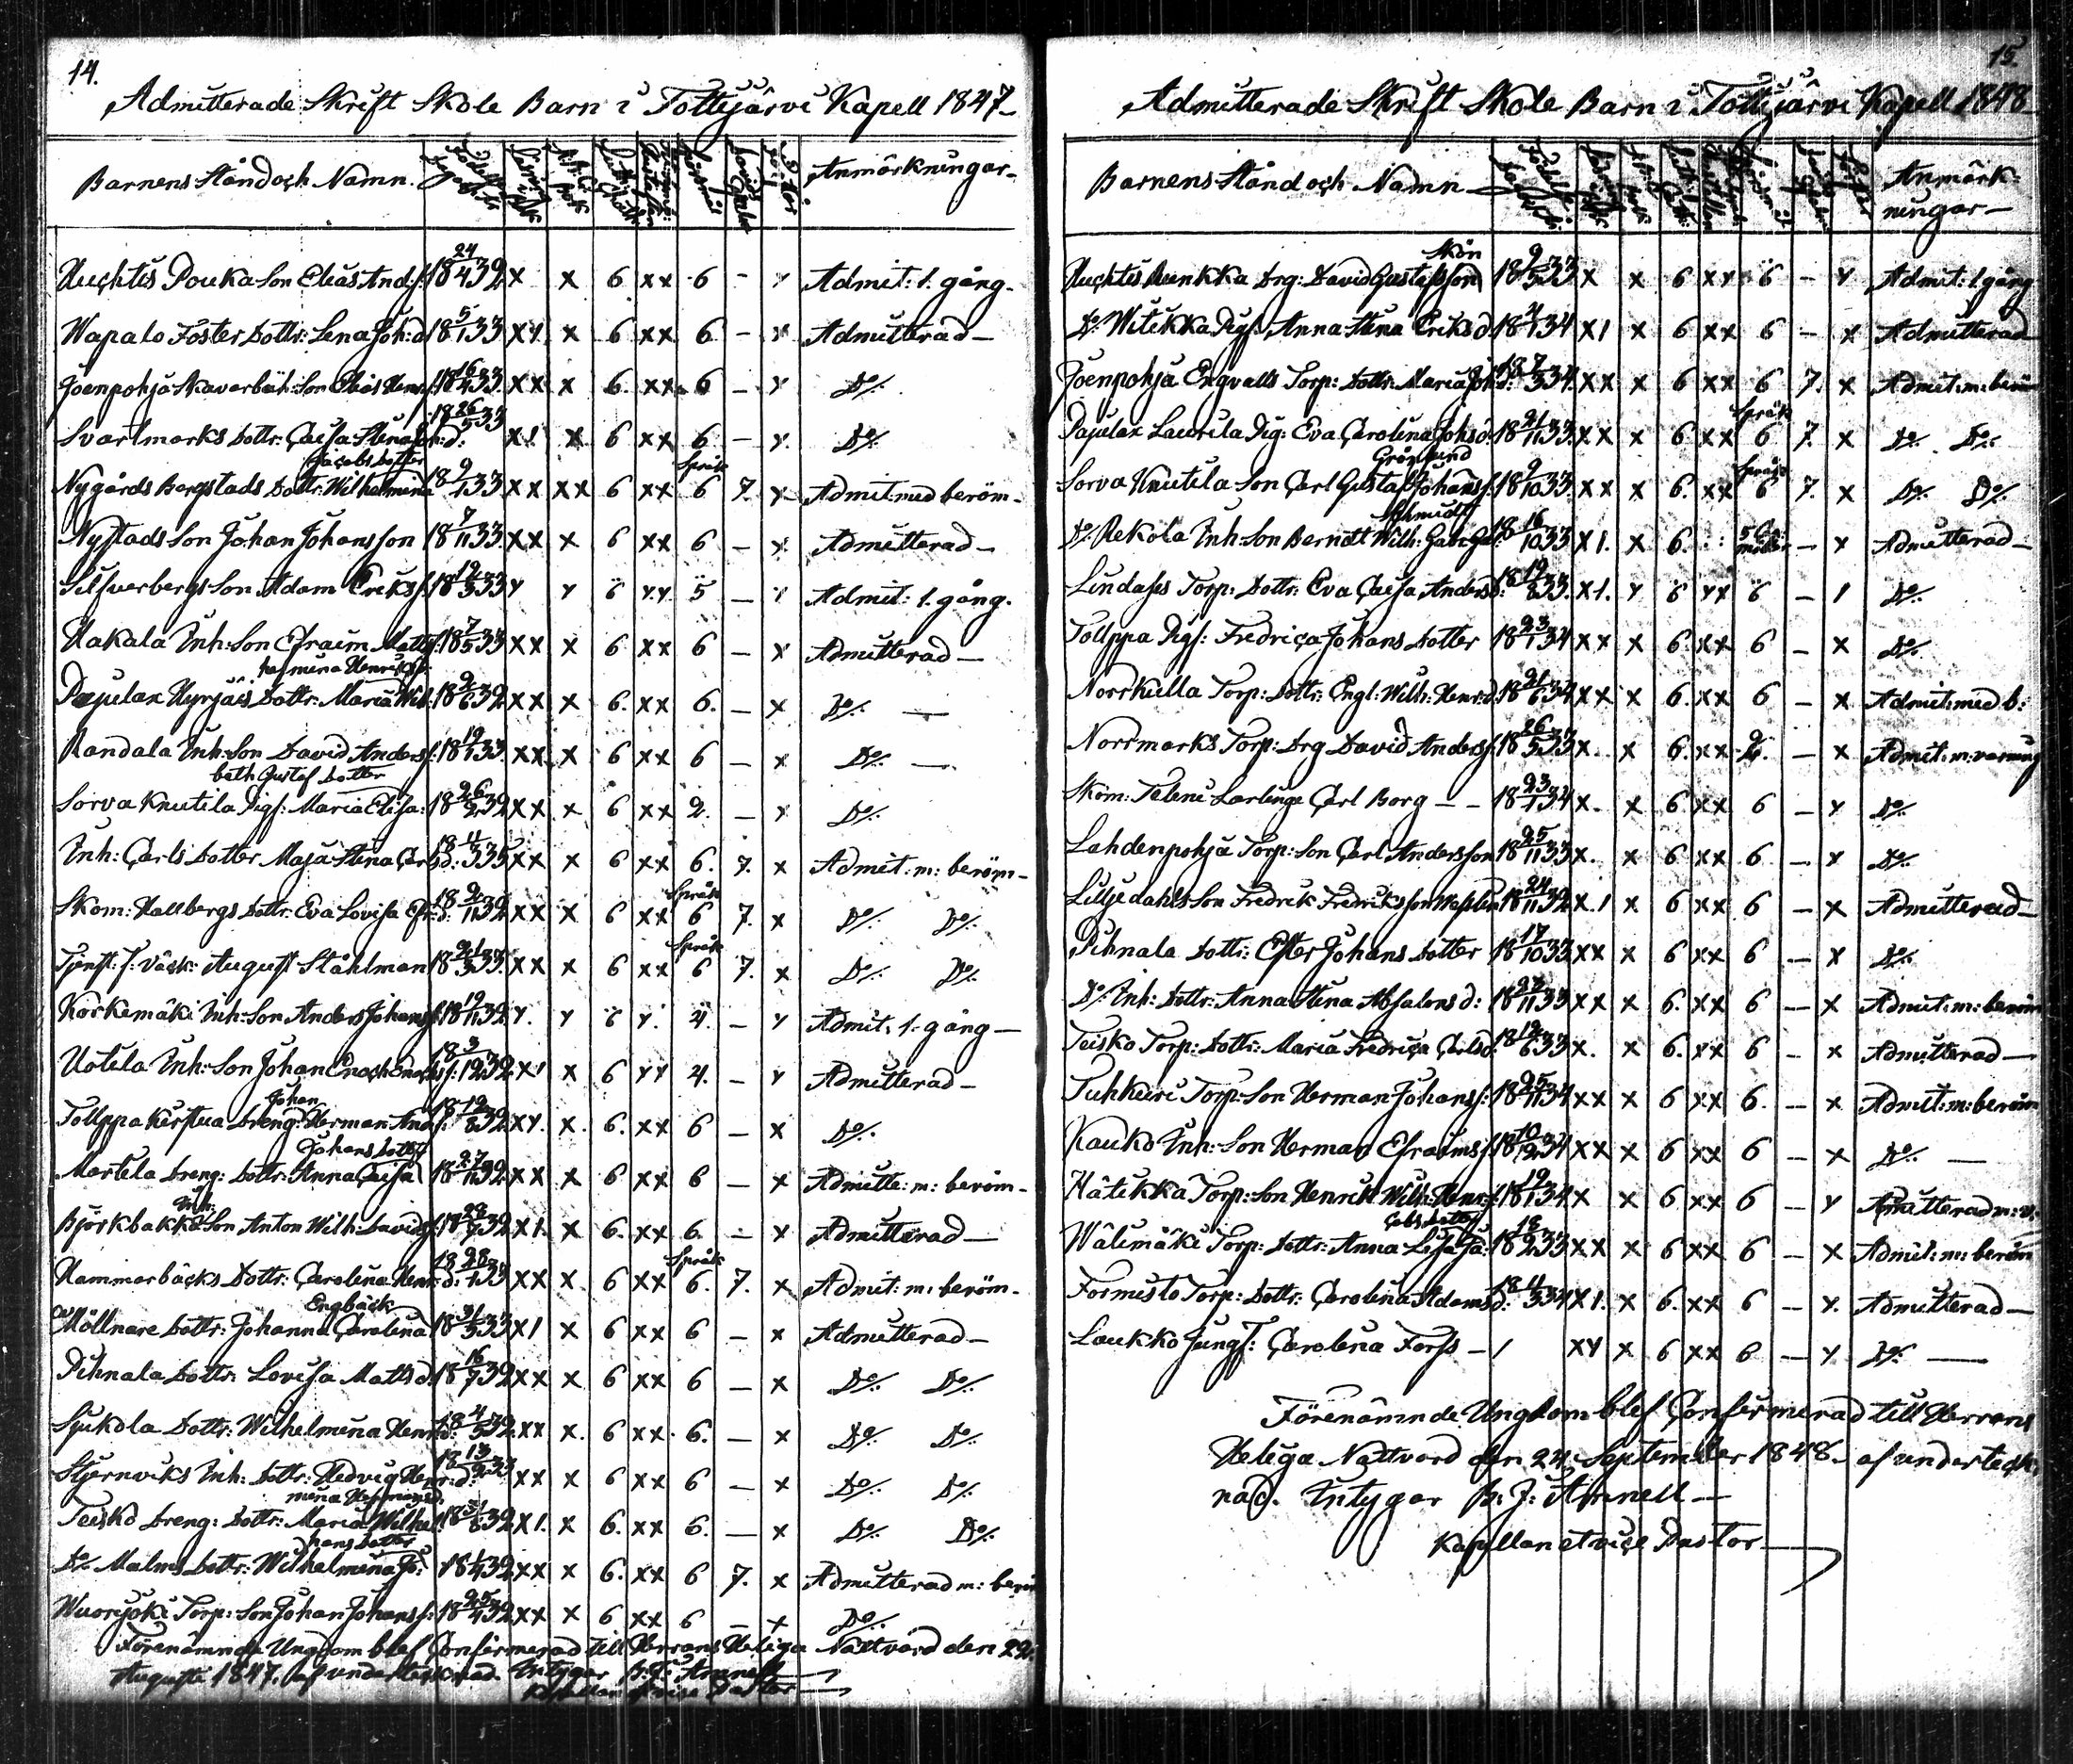 14.
Admitterade Skrift Skole Barn i Tottijärvi Kapell 1847
Barnens Stånd och Namn. Anmärkningar
Huchtis Pouka Son Elias And:s: 18 24/4 32 x x 6 xx 6 - x Admit: 1. gång.
Wapalo Foster Dottr: Lena Joh:d 18 5/1 33 xx x 6 xx 6 - x Admitterad
Joenpohja Son Elias 18 16/4 33 xx x 6. xx 6 - x Do
Svartmarks Dottr: Cajsa Stina Joh:d: 18 26/5 33 x1 x 6 xx 6 - x. Do
Jacobs Dotter Språk
Nygårds Bergstads Dottr: Wilhelmina 18 9/1 33 xx xx 6 xx 6 7. x Admit med beröm
Nystads Son Johan Johansson 18 7/11 33 xx x 6 xx 6 - x Admitterad
Silfverbergs Son Adam Eriks: 18 19/3 33 x x 6 xx 5 - x Admit: 1. gång.
Hakala Inh: Son Efraim Matts: 18 7/5 33 xx x 6 xx 6 - x Admitterad
helmina Henriksd:
Pajulax Hyrjäis Dottr: Maria Wil: 18 9/6 32 xx x 6. xx 6. - x Do
Randala Inh: Son David Anders: 18 19/1 33 xx x 6 xx 6 - x Do
beth Gustaf Dotter
Sorva Knutila Pigs: Maria Elisa: 18 26/2 32 xx x 6 xx 2. - x Do
Inh: Carls Dotter Maja Stina Carlsd: 18 4/3 35 xx x 6 xx 6. 7. x Admit: m: beröm
Språk
Skom: Hallbergs Dottr: Eva Lovisa 18 9/11 32 xx x 6 xx 6 7. x Do Do
Språk
August Ståhlman 18 21/3 33 xx x 6 xx 6 7. x Do Do
Korkemäki Inh: Son Anders Johans: 18 19/11 32 x. x 6 x. 4. - x Admit: 1. gång
Uotela Inh: Son Johan Enoch 18 3/12 32 x1 x 6 xx 4. - x Admitterad
Johan
Tolppa Kerstua Dreng: Herman And: 18 19/8 32 xx. x. 6. xx 6 - x Do
Johans Dotter
Martila Dreng: Dottr: Anna Cajsa 18 27/11 32 xx x 6 xx 6 - x Admitte: m: beröm
Inh:
Björkbakka Son Anton Wilh: Davids: 18 28/7 32 x1. x 6. xx 6. - x Admitterad
Språk
Hammarbäcks Dottr: Carolina Henr:d: 18 28/1 33 xx x. 6 xx 6. 7. x Admit: m: beröm
Engbäck
Möllnare Dottr: Johanna Carolina 18 31/3 33 x1 x 6 xx 6 - x Admitterad
Pihnala Dottr: Lovisa Matts d: 18 16/7 32 xx x 6 xx 6 - x Do Do
Sjukola Dottr: Wilhelmina Henr:d: 18 4/5 32 xx x. 6 xx 6. - x Do Do
Stjernviks Inh: Dottr: Hedvig Henr:d: 18 13/2 33 xx x 6 xx 6 - x Do Do
mina Hermansd.
Teisko Dreng: Dottr: Maria Wilhel: 18 31/8 32 x1. x 6. xx 6. - x Do Do
hans Dotter
Do Malms Dottr: Wilhelmina Jo: 18 1/4 32 xx x 6. xx 6 7. x Admitterad m: beröm
Wuorijoki Torp: Son Johan Johans: 18 25/4 32 xx x 6 xx 6 - x Do
Förenämnde Ungdom blef Confirmerad till Herrans Heliga Nattvard den 22.
Augusti 1847. af undertecknad. Intygar B: J: Amnell
Kapellan et vice Pastor
15.
Admitterade Skrift Skole Barn i Tottijärvi Kapell 1848
Barnens Stånd och Namn Anmärk:
ningar
Skön
Huchtis Drg: David Gustafsson 18 9/5 33 x x 6 xx 6 - x Admit: 1. gång
Do Witikka Pigs: Anna Stina Eriks d: 18 4/1 34 x1 x 6 xx 6 - x Admitterad
Joenpohja Engvalls Torp: Dottr: Maria Joh:d: 18 7/3 34 xx x 6 xx 6 7. x Admit: m: beröm
Språk
Pajulax Laurila Pig: Eva Carolina Johs d: 18 21/11 33 xx x 6 xx 6 7. x Do Do
Grönlund Språk
Sorva Knutila Son Carl Gustaf Johans: 18 9/10 33 xx x 6. xx 6 7. x Do Do
Schmidt
Do Rekola Inh: Son Berndt Wilh: 18 16/10 33 x1. x 6. - x Admitterad
Lindases Torp: Dottr: Eva Cajsa Anders d: 18 19/8 33. x1. x 6 xx 6 - 1 Do
Tolppa Pigs: Fredrica Johans Dotter 18 23/1 34 xx x 6. xx 6 - x Do
Norrkulla Torp: Dottr: Engl: Wilh: Henr:d: 18 21/6 34 xx x 6. xx 6 - x Admit: med b:
Norrmarks Torp: Drg David Anders: 18 26/5 33 x. x 6. xx 2. - x Admit: m: varning
Skom: Teleni Larlinge Carl Borg 18 23/1 34 x. x 6 xx 6 - x Do
Lahdenpohja Torp: Son Carl Andersson 18 25/11 33 x. x 6 xx 6 - x Do
Liljedahls Son Fredrik Fredriksson 18 24/11 32 x.1 x 6 xx 6 - x Admitterad
Pihnala Dottr: Ester Johans Dotter 18 17/10 33 xx x 6 xx 6 - x Do
Do Inh: Dottr: Anna Stina Absalons d: 18 23/11 33 xx x 6. xx 6 - x Admit: m: beröm
Teisko Torp: Dottr: Maria Fredrica Carls d: 18 12/6 33 x. x 6. xx 6 - x Admitterad
Tuhkuri Torp: Son Herman Johans: 18 25/11 34 xx x 6 xx 6. - x Admit: m: beröm
Kauko Inh: Son Herman Efraims: 18 10/12 34 xx x 6 xx 6 - x Do
Hätikkä Torp: Son Henrik Wilh: Henr: 18 19/1 34 x x 6 xx 6 - x Admitterad m: v:
cobs Dotter
Wälimäki Torp: Dottr: Anna Lisa Ja: 18 18/2 33 xx x 6 xx 6 - x Admit: m: beröm
Formisto Torp: Dottr: Carolina Adams d: 18 4/3 34 x1. x 6. xx 6 - x. Admitterad
Laukko Jungf: Carolina Forss - 1 xx x 6 xx 6 - x Do
Förenämnde Ungdom blef Confirmerad till Herrans
Heliga Nattvard den 24. September 1848. af underteck:
nad. Intygar B: J: Amnell
Kapellan et vice Pastor